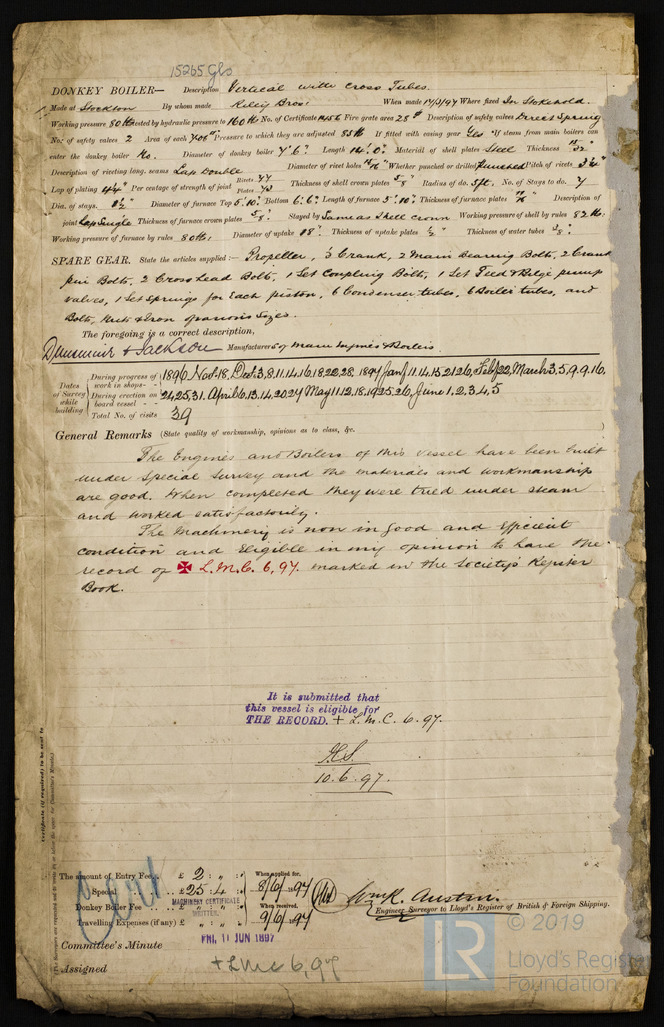 15265 Gls
DONKEY BOILER— Description Vertical with Cross Tubes.
Made at Stockton By whom made Riley Bros: When made 17/3/97 Where fixed In Stokehold.
Working pressure 80 lb tested by hydraulic pressure to 160 lb No. of Certificate Fire grate area 28 Description of safety valves Direct Spring
No. of safety valves 2 Area of each Pressure to which they are adjusted 85 lb If fitted with easing gear Yes If steam from main boilers can
enter the donkey boiler No. Diameter of donkey boiler 7' 6" Length 14' 0" Material of shell plates Steel Thickness
Description of riveting long. seams Lap Double Diameter of rivet holes Whether punched or drilled Punched Pitch of rivets 3 1/4"
Lap of plating 4 1/4" Per centage of strength of joint Rivets 77 Plates 73 Thickness of shell crown plates 5/8" Radius of do. 5 ft. No. of Stays to do. 7
Dia. of stays. 1 1/2" Diameter of furnace Top 5' 10" Bottom 6' 6" Length of furnace 5' 10" Thickness of furnace plates Description of
joint Lap Single Thickness of furnace crown plates 5/8" Stayed by Same as Shell crown Working pressure of shell by rules 82 lb:
Working pressure of furnace by rules 80 lb: Diameter of uptake 18" Thickness of uptake plates 1/2" Thickness of water tubes 3/8"
SPARE GEAR. State the articles supplied:— Propeller, 1/3 Crank, 2 Main Bearing Bolts, 2 Crank
pin Bolts, 2 Crosshead Bolts, 1 Set Coupling Bolts, 1 Set Feed & Bilge pump
valves, 1 Set Springs for Each piston, 6 Condenser tubes, 6 Boiler tubes, and
Bolts, Nuts & Iron of various Sizes.
The foregoing is a correct description,
Dunsmuir & Jackson Manufacturers of Main Engines & Boilers
Dates of Survey while building
During progress of work in shops - - 1896 Nov 18, Dec 3, 8, 11, 14, 16, 18, 22, 28, 1897 Jan 11, 14, 15, 21, 26, Feb 22, March 3, 5, 9, 9, 16,
During erection on board vessel - - - 24, 25, 31, April 6, 13, 14, 20, 27 May 11, 12, 18, 19, 25, 26, June 1, 2, 3, 4, 5
Total No. of visits 39
General Remarks (State quality of workmanship, opinions as to class, &c.
The Engines and Boilers of this vessel have been built
under Special Survey and the materials and workmanship
are good. When completed they were tried under steam
and worked satisfactorily.
The Machinery is now in good and efficient
condition and eligible in my opinion to have the
record of ✠ L.M.C. 6,97. marked in the Society's Register
Book.
It is submitted that
this vessel is eligible for
THE RECORD. + L.M.C. 6.97.
10.6.97.
Certificate (if required) to be sent to
The amount of Entry Fee.. £ 2 : " : " When applied for,
Special £ 25 : 4 : 8/6/1897
Donkey Boiler Fee £ " : " : " When received,
Travelling Expenses (if any) £ " : " : " 9/6/1897
MACHINERY CERTIFICATE
WRITTEN.
Cert
Wm R. Austin.
Engineer Surveyor to Lloyd's Register of British & Foreign Shipping.
FRI, 11 JUN 1897
Committee's Minute
Assigned + LMC 6,97
© 2019
LR
Lloyd's Register
Foundation